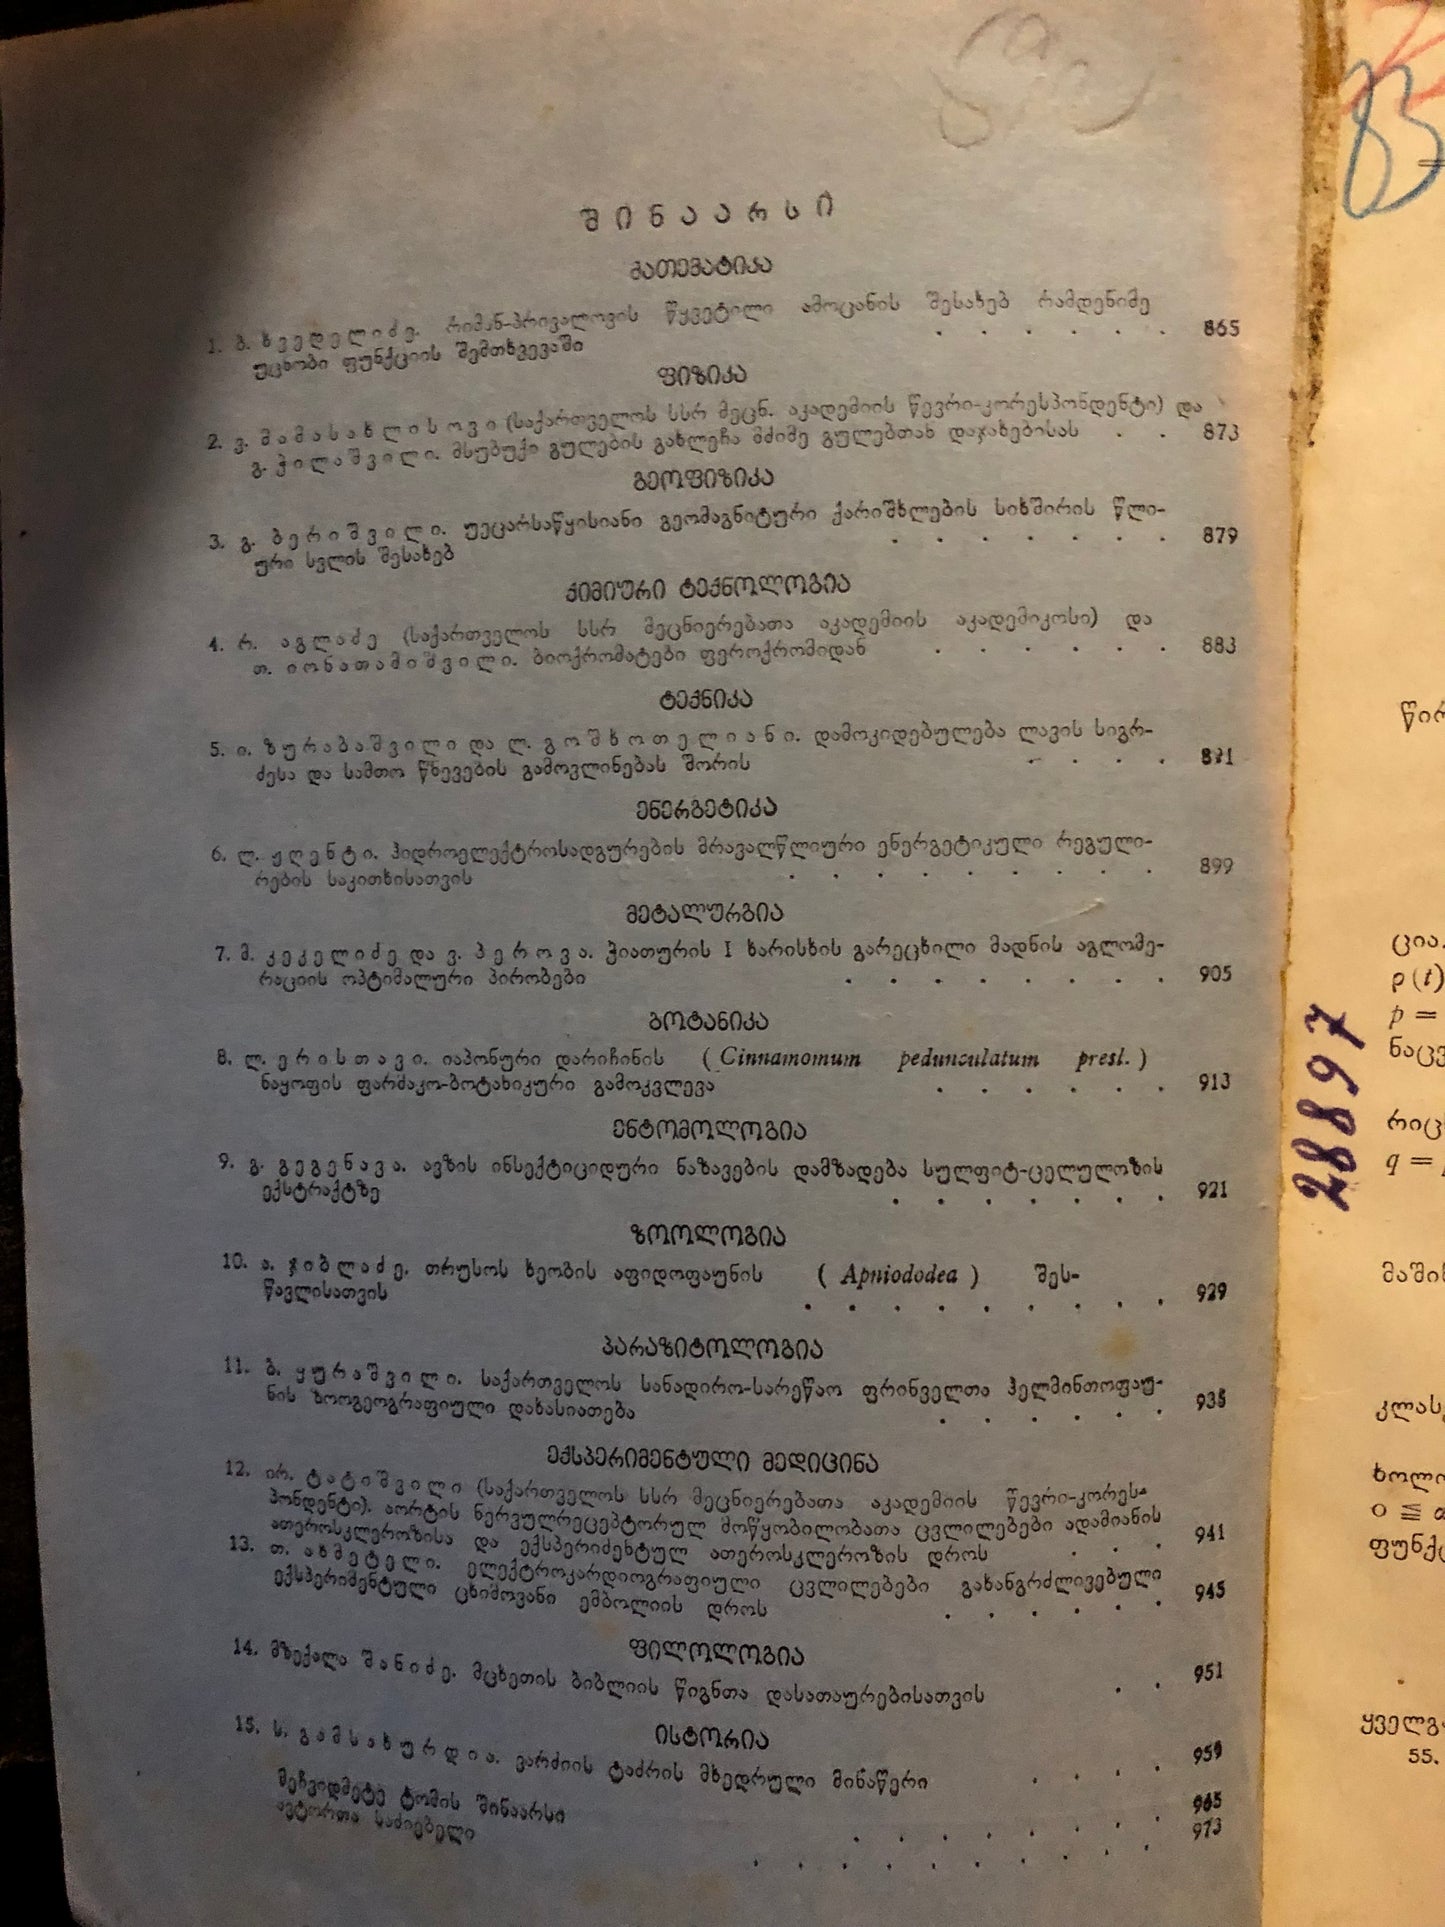 შინაარსი
მათემატიკა
1. ბ. ხვედელიძე. რიმან-პრივალოვის წყვეტილი ამოცანის შესახებ რამდენიმე
უცნობი ფუნქციის შემთხვევაში . . . . . . 865
ფიზიკა
2. ვ. მამასახლისოვი (საქართველოს სსრ მეცნ. აკადემიის წევრი-კორესპონდენტი) და
გ. ჭილაშვილი. მსუბუქი გულების გახლეჩა მძიმე გულებთან დაჯახებისას . . 873
გეოფიზიკა
3. გ. ბერიშვილი. უეცარსაწყისიანი გეომაგნიტური ქარიშხლების სიხშირის წლი-
ური სვლის შესახებ . . . . . . . 879
ქიმიური ტექნოლოგია
4. რ. აგლაძე (საქართველოს სსრ მეცნიერებათა აკადემიის აკადემიკოსი) და
თ. იონათამიშვილი. ბიოქრომატები ფეროქრომიდან . . . . . . 883
ტექნიკა
5. ი. ზურაბაშვილი და ლ. გოშხოთელიანი. დამოკიდებულება ლავის სიგრ-
ძესა და სამთო წნევების გამოვლინებას შორის . . . . 891
ენერგეტიკა
6. ლ. ჟღენტი. ჰიდროელექტროსადგურების მრავალწლიური ენერგეტიკული რეგული-
რების საკითხისათვის . . . . . . . . . 899
მეტალურგია
7. მ. კეკელიძე და ვ. პეროვა. ჭიათურის I ხარისხის გარეცხილი მადნის აგლომე-
რაციის ოპტიმალური პირობები . . . . . . . . 905
ბოტანიკა
8. ლ. ერისთავი. იაპონური დარიჩინის (Cinnamomum pedunculatum presl.)
ნაყოფის ფარმაკო-ბოტანიკური გამოკვლევა . . . . . . 913
ენტომოლოგია
9. გ. გეგენავა. ავზის ინსექტიციდური ნაზავების დამზადება სულფიტ-ცელულოზის
ექსტრაქტზე . . . . . . . 921
ზოოლოგია
10. ა. ჯიბლაძე. თრუსოს ხეობის აფიდოფაუნის (Apniododea) შეს-
წავლისათვის . . . . . . . . . 929
პარაზიტოლოგია
11. ბ. ყურაშვილი. საქართველოს სანადირო-სარეწაო ფრინველთა ჰელმინთოფაუ-
ნის ზოოგეოგრაფიული დახასიათება . . . . . . 935
ექსპერიმენტული მედიცინა
12. ირ. ტატიშვილი (საქართველოს სსრ მეცნიერებათა აკადემიის წევრი-კორეს-
პონდენტი). აორტის ნერვულრეცეპტორულ მოწყობილობათა ცვლილებები ადამიანის
ათეროსკლეროზისა და ექსპერიმენტულ ათეროსკლეროზის დროს . . . 941
13. თ. ახმეტელი. ელექტროკარდიოგრაფიული ცვლილებები გახანგრძლივებული
ექსპერიმენტული ცხიმოვანი ემბოლიის დროს . . . . . . 945
ფილოლოგია
14. მზექალა შანიძე. მცხეთის ბიბლიის წიგნთა დასათაურებისათვის . . 951
ისტორია
15. ს. გამსახურდია. ვარძიის ტაძრის მხედრული მინაწერი . . . . 959
მეჩვიდმეტე ტომის შინაარსი . . . . . . . . 965
ავტორთა საძიებელი . . . . . . . . . 973
83
28897
წირ
ცია.
ρ(t)
p =
ნაცვ
რიც
q =
მაშინ
კლას
ხოლო
0 ≦ α
ფუნქც
ყველგ
55.